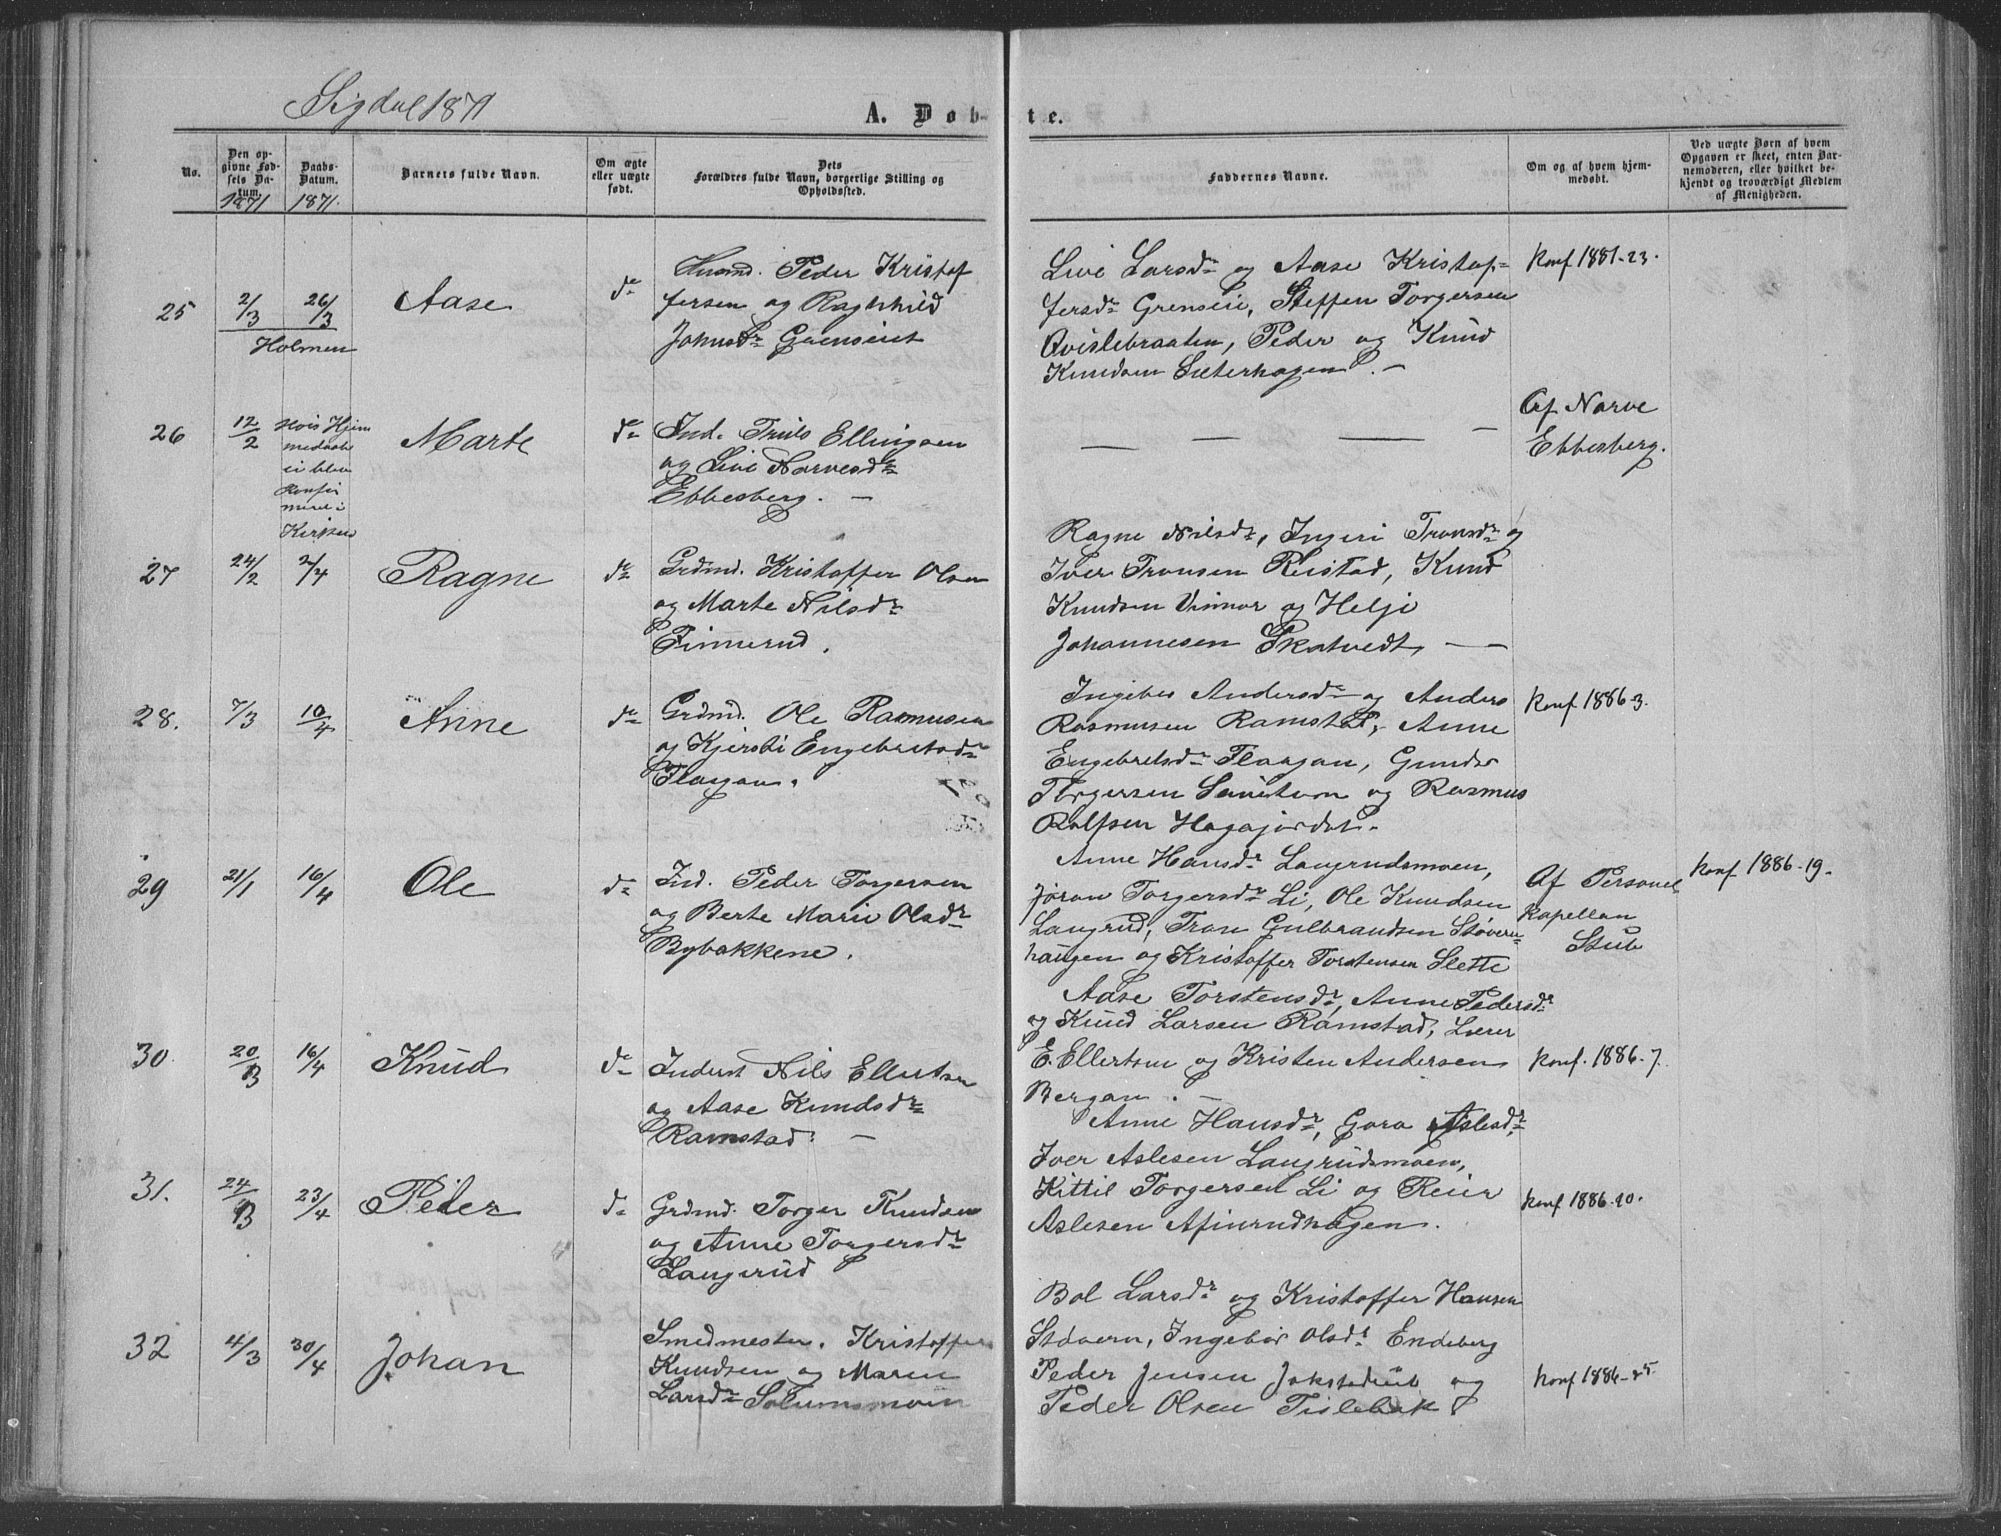 Sigdal 1871
A. Døb-
te.
No.
Den op-
givne Fød-
sels Da-
tum.
1871
Daabs-
Datum.
1871.
Barnets fulde Navn.
Om ægte
eller uægte
født.
Dets
Forældres fulde Navn, borgerlige Stilling og
Opholdssted.
Faddernes Navne.
Om og af hvem hjem-
medøbt.
Ved uægte Børn af hvem
Opgaven er skeet, enten Bar-
nemoderen, eller hvilket be-
kjendt og troværdigt Medlem
af Menigheden.
25
2/3
26/3
Holmen
Aase
do
Husmd. Peder Kristof
fersen og Raghnild
Johnsdr Grenseiet
Live Larsdr og Aase Kristof-
fersdr Grenseie, Steffen Torgersen
Qvislebraaten, Peder og Knud
Knudsen Sæterhagen. -
Konf 1881-23.
26
12/2
Hvis Hjem
medaab
ei blev
Konfir
meret i
Kirken
Marte
do
Ind. Truls Ellingsen
og Live Narvesdr
Ebbesberg. -
— — — —
Af Narve
Ebbesberg.
27
24/2
2/4
Ragne
do
Grdmd. Kristoffer Olsen
og Marte Nilsdr
Finnerud.
Ragne Nilsdr, Ingeri Tronsdr og
Iver Tronsen Reistad, Knud
Knudsen Vinnor og Helje
Johannesen Skatvedt, — —
28.
7/3
10/4
Anne
do
Grdmd. Ole Rasmusen
og Kjersti Engebretsdr
Flagan.
Ingebor Andersdr og Anders
Rasmusen Ramstad, Anne
Engebretsdr Flaagan, Gunder
Torgersen og Rasmus
Rolfsen Hagajordet.
Konf 1886-3.
29
21/1
16/4
Ole
do
Ind. Peder Torgersen
og Berte Marie Olsdr
Bybakkene.
Anne Hansdr Langrudsmoen,
Jøran Torgersdr Li, Ole Knudsen
Langrud, Tron Gulbrandsen Støvern-
haugen og Kristoffer Torstensen Slette
Af Personel
Kapellan
Stub
Konf 1886-19.
30
20/3
16/4
Knud
do
Inderst Nils Ellertsen
og Aase Knudsdr
Ramstad. -
Aase Torstensdr, Anne Pedersdr
og Knud Larsen Ramstad, Lærer
E. Ellertsen og Kristen Andersen
Bergan. -
Konf. 1886-7.
31.
24/3
23/4
Peder
do
Grdmd. Torger Knudsen
og Anne Torgersdr
Langerud
Anne Hansdr, Goro Aslesdr,
Iver Aslesen Langrudsmoen,
Kittil Torgersen Li og Reier
Aslesen Afinrudhagen.
Konf 1886-20.
32
4/3
30/4
Johan
Smedmester. Kristoffer
Knudsen og Maren
Larsdr Solumsmoen
Bol Larsdr og Kristoffer Hansen
Støvern, Ingebor Olsdr Endeberg
Peder Jensen og
Peder Olsen Tislebak
Konf 1886-25.